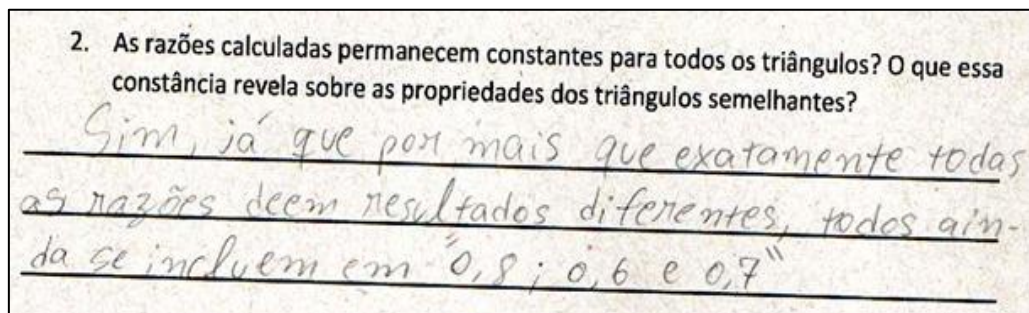 2. As razões calculadas permanecem constantes para todos os triângulos? O que essa
constância revela sobre as propriedades dos triângulos semelhantes?
Sim, já que por mais que exatamente todas
as razões deem resultados diferentes, todos ain-
da se incluem em "0,8; 0,6 e 0,7"